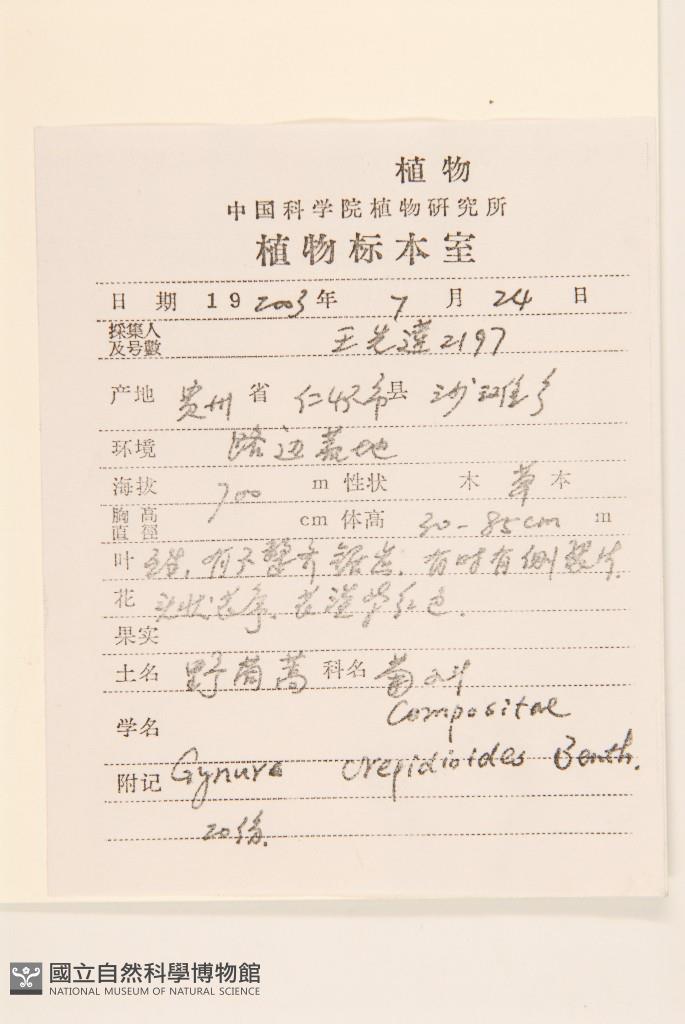 植物
中国科学院植物研究所
植物标本室
日 期 19 2003 年 7 月 24 日
採集人 及号數 王先達 2197
产地 贵州 省 仁怀市 县 沙滩乡
环境 路边荒地
海拔 700 m 性状 木 草 本
胸高 直徑 cm 体高 30-85cm m
叶 互生, 有不整齐锯齿, 有时有侧裂片.
花 头状花序, 花淡紫红色.
果实
土名 野茼蒿 科名 菊科
Compositae
学名
附记 Gynura crepidioides Benth.
20份.
國立自然科學博物館
NATIONAL MUSEUM OF NATURAL SCIENCE